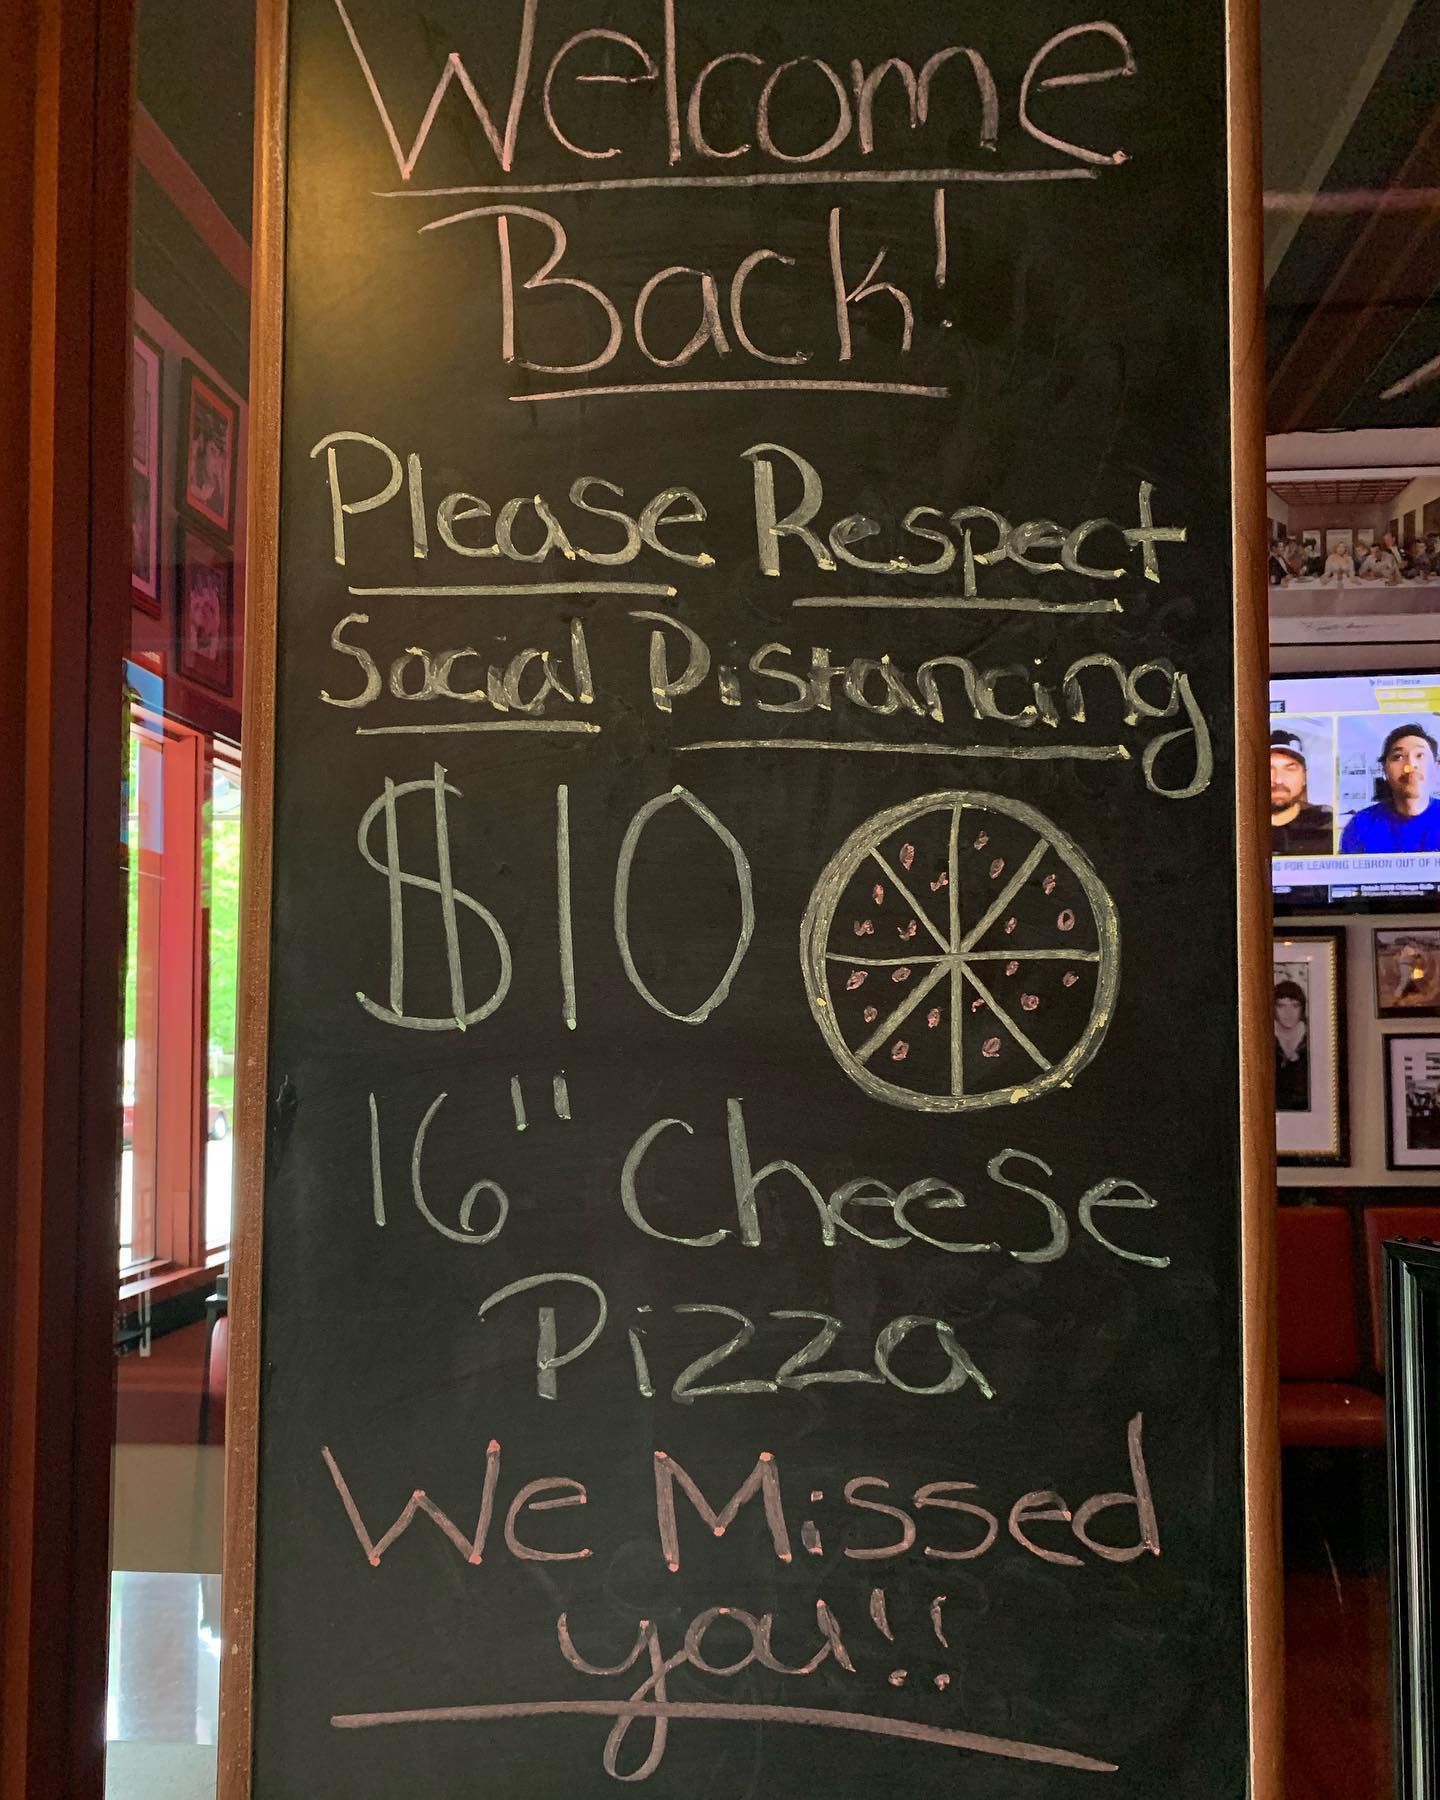 Welcome
Back!
Please Respect
Social Distancing
$10
16" Cheese
Pizza
We Missed
you!!
Paul Pierce
G FOR LEAVING LEBRON OUT OF H